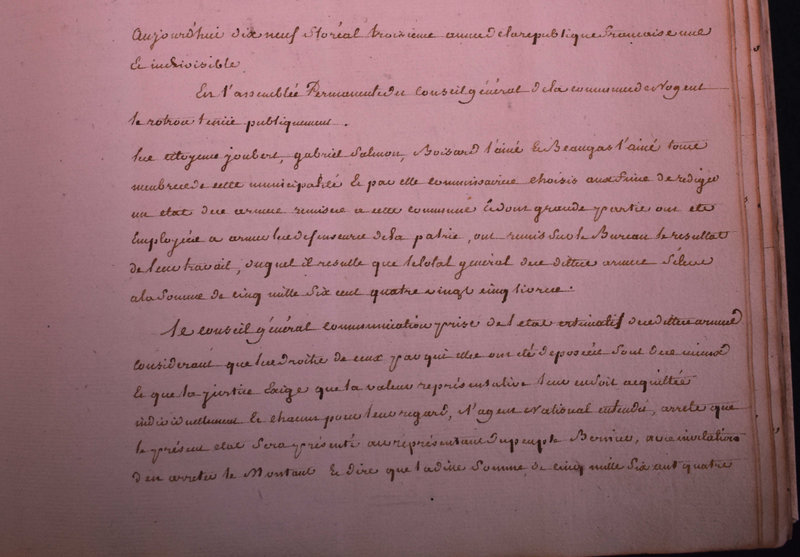 Aujourd'hui dix neuf floréal troisieme année dela republique francaise une
& indivisible
En l'assemblée Permanente du Conseil général de la commune de Nogent
le rotrou tenüe publiquement.
les citoyens joubert, gabriel Salmon, Boisard l'ainé & Beaugas l'ainé tous
membres de cette municipalité & par elle commissaires choisis aux fins de rediger
un etat des armes remises a cette commune & dont grande partie ont eté
Employées a armer les defenseurs de la patrie, ont remis sur le Bureau le resultat
de leur travail, duquel il resulte que le total général des dittes armes s'éleve
a la Somme de cinq mille Six cent quatre vingt cinq livres.
Le Conseil général communication prise de l'etat estimatif des dittes armes
considerant que les droits de ceux par qui elles ont eté deposées sont
& que la justice exige que la valeur représentative leur en soit acquittée
individuellement & chacun pour leur regard, l'agent National entendu, arrete que
le présent etat sera présenté au représentant du peuple Bernier, avec invitation
d'en arreter le Montant & dire que ladite Somme de cinq mille Six cent quatre